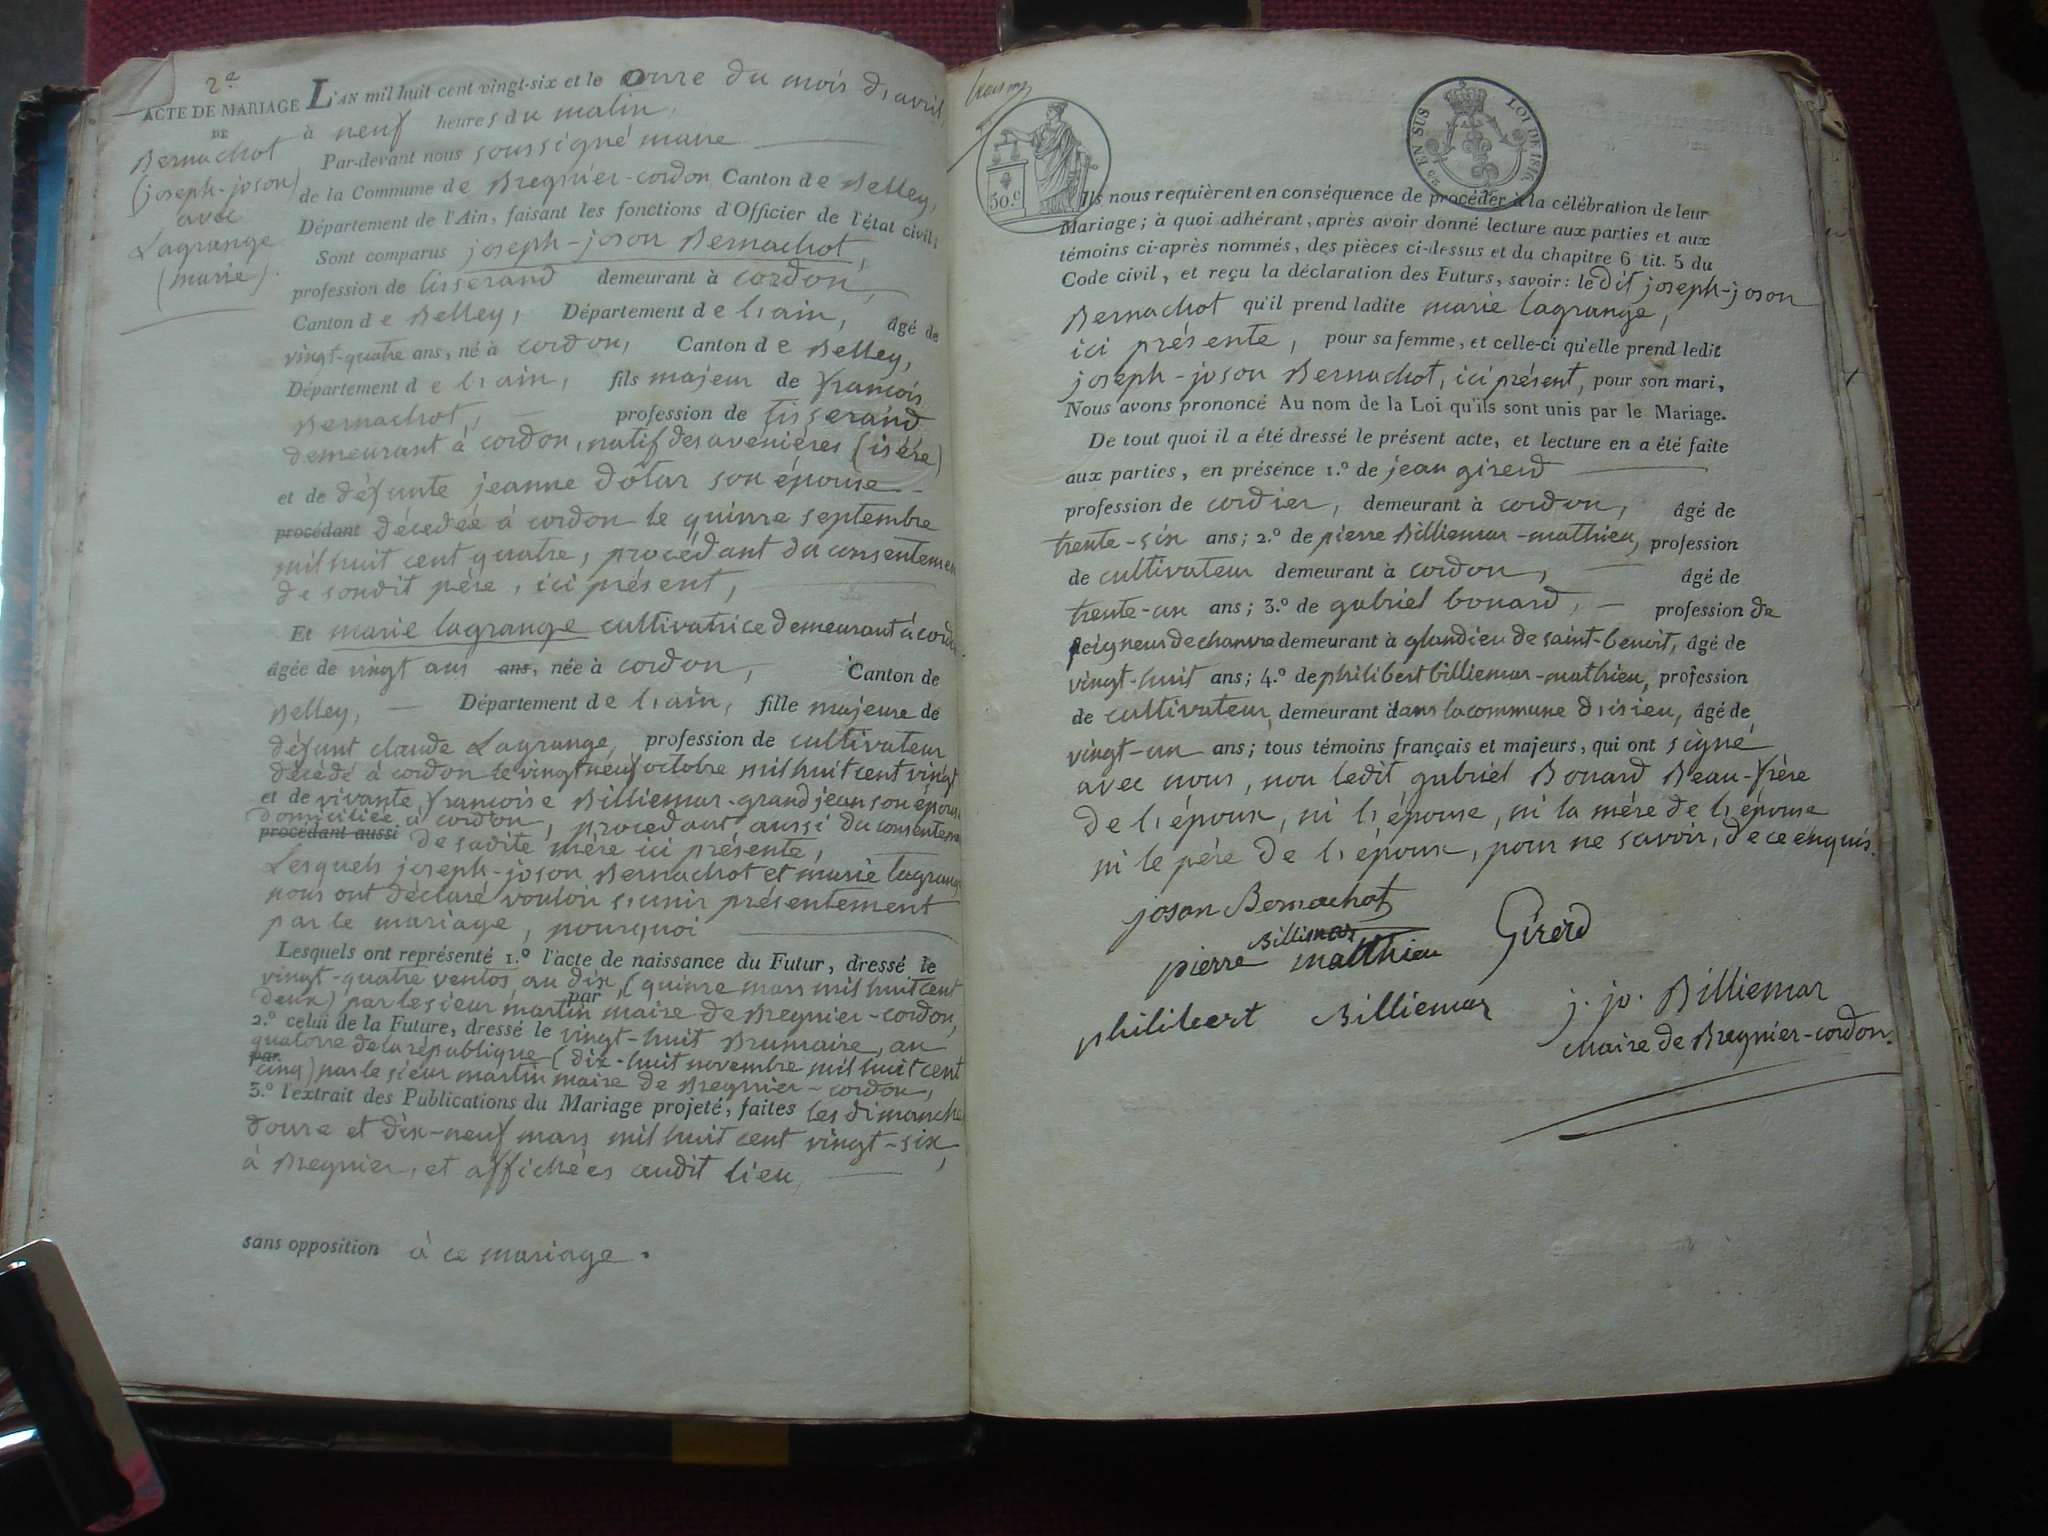 2.e
ACTE DE MARIAGE
DE
Bernachot
(joseph-joson)
avec
Lagrange
(marie).
L'AN mil huit cent vingt-six et le onze du mois d'avril,
à neuf heures du matin,
Par-devant nous soussigné maire
de la Commune de Bregnier-cordon Canton de Belley,
Département de l'Ain, faisant les fonctions d'Officier de l'état civil,
Sont comparus joseph-joson Bernachot,
profession de tisserand demeurant à cordon,
Canton de Belley, Département de l'ain, âgé de
vingt-quatre ans, né à cordon, Canton de Belley,
Département de l'ain, fils majeur de françois
Bernachot, profession de tisserand
demeurant à cordon, natif des avenières (isére)
et de défunte jeanne dôtar son épouse
procédant décedée à cordon le quinze septembre
mil huit cent quatre, procédant du consentemen
de sondit père, ici présent,
Et marie lagrange cultivatrice demeurant à cordon
âgée de vingt ans ans, née à cordon, Canton de
Belley, Département de l'ain, fille majeure de
défunt claude Lagrange, profession de cultivateur
décédé à cordon le vingt neuf octobre mil huit cent vingt
et de vivante françoise Billiemar-grandjean son épouse
domiciliée à cordon, procedant aussi du consentem
procédant aussi de sadite mère ici présente,
Lesquels joseph-joson Bernachot et marie lagrange
nous ont déclaré vouloir s'unir présentement
par le mariage, pourquoi
Lesquels ont représenté 1.º l'acte de naissance du Futur, dressé le
vingt-quatre ventos an dix, (quinze mars mil huit cent
deux) par le sieur martin maire de Bregnier-cordon,
par
2.º celui de la Future, dressé le vingt-huit Brumaire, an
quatorze de la république (dix-huit novembre mil huit cent
par cinq) par le sieur martin maire de Bregnier-cordon,
3.º l'extrait des Publications du Mariage projeté, faites les dimanche
douze et dix-neuf mars mil huit cent vingt-six,
à Bregnier, et affichées audit lieu,
sans opposition à ce mariage.
30.c
25 EN SUS
LOI DE 1816
Ils nous requièrent en conséquence de procéder à la célébration de leur
Mariage; à quoi adhérant, après avoir donné lecture aux parties et aux
témoins ci-après nommés, des pièces ci-dessus et du chapitre 6 tit. 5 du
Code civil, et reçu la déclaration des Futurs, savoir: le dit joseph-joson
Bernachot qu'il prend ladite marie lagrange,
ici présente, pour sa femme, et celle-ci qu'elle prend ledit
joseph-joson Bernachot, ici présent, pour son mari,
Nous avons prononcé Au nom de la Loi qu'ils sont unis par le Mariage.
De tout quoi il a été dressé le présent acte, et lecture en a été faite
aux parties, en présence 1.º de jean girerd
profession de cordier, demeurant à cordon, âgé de
trente-six ans; 2.º de pierre Billiemar-mathieu, profession
de cultivateur demeurant à cordon, âgé de
trente-un ans; 3.º de gabriel bonard, profession de
peigneur de chanvre demeurant à glandieu de saint-benoit, âgé de
vingt-huit ans; 4.º de philibert billiemar-mathieu, profession
de cultivateur, demeurant dans la commune d'isieu, âgé de
vingt-un ans; tous témoins français et majeurs, qui ont signé
avec nous, non ledit gabriel Bonard Beau-frère
de l'époux, ni l'épouse, ni la mère de l'épouse
ni le père de l'époux, pour ne savoir, de ce enquis.
joson Bernachot
Girerd
pierre Billimar matthieu
philibert Billiemar
j. jo. Billiemar
maire de Bregnier-cordon.